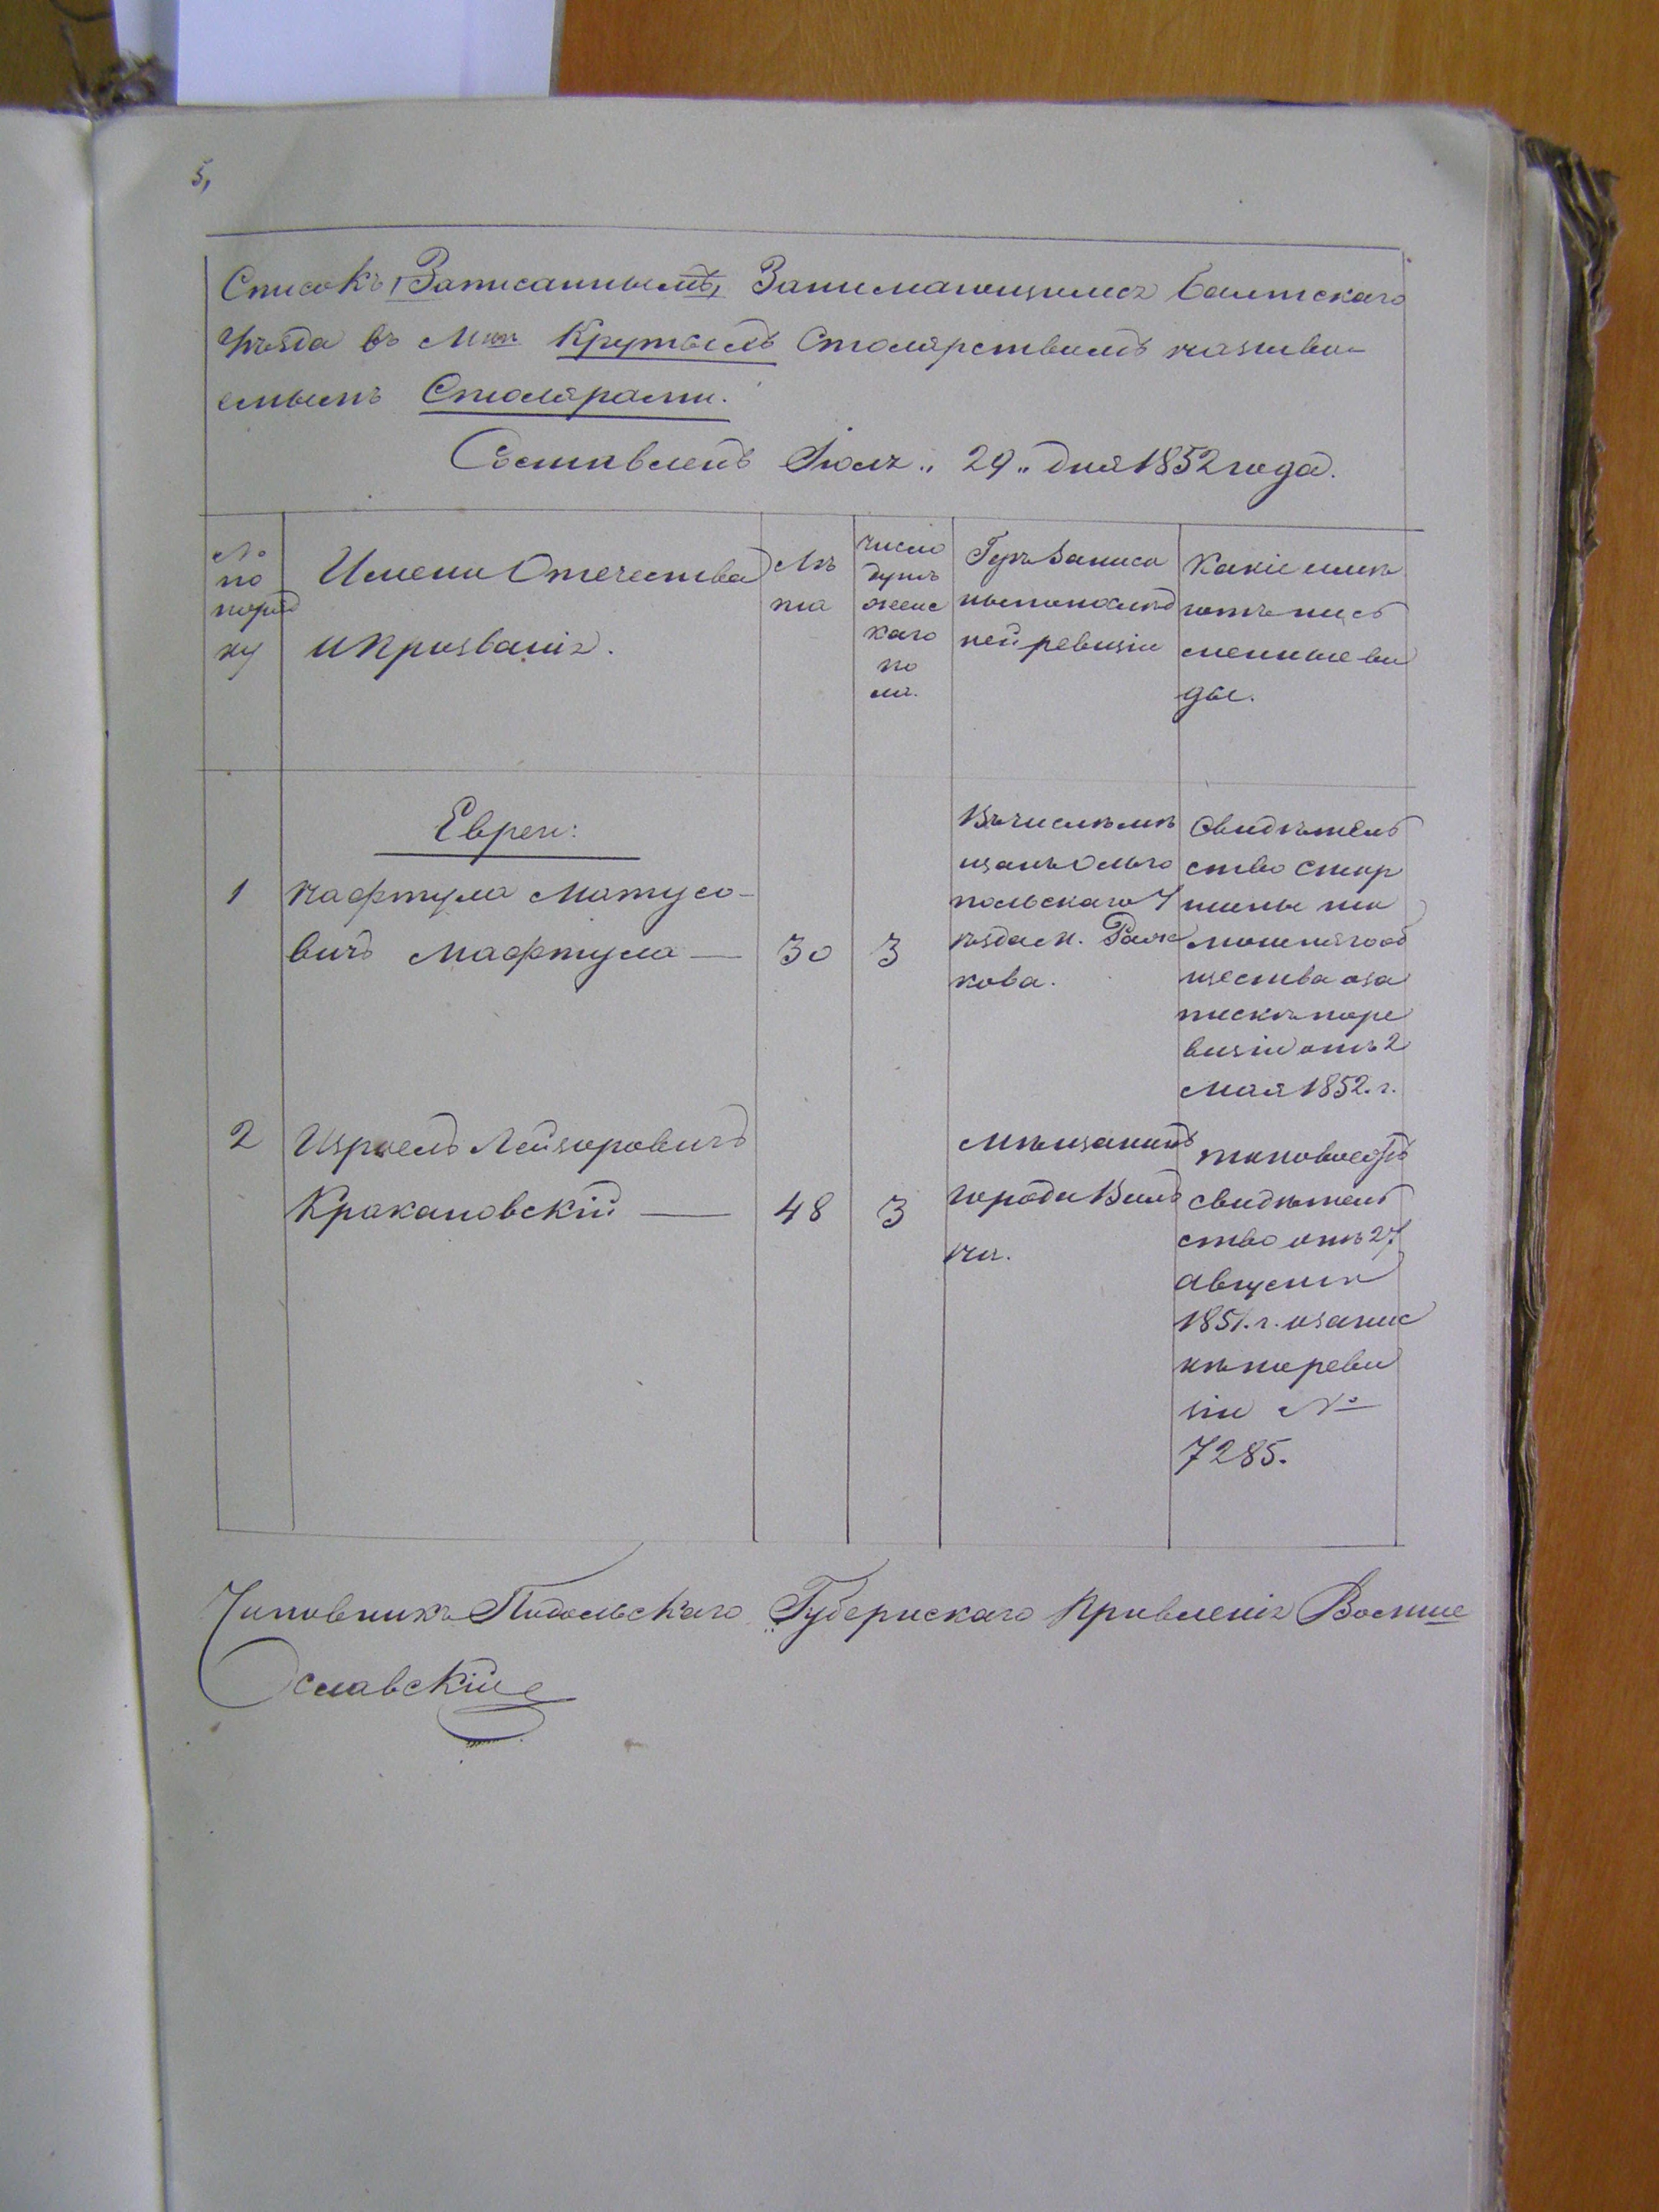 5,
Списокъ, Записаннымъ, Занимающимся Балтскаго
Уѣзда въ Мѣс. Крутыхъ Столярствомъ называ-
емымъ Столярами.
Составленъ Іюля „ 29 „ дня 1852 года.
№ по поряд ку
Имени Отечества и Прозванія.
Лѣ та
число душъ женс каго по ла.
Гдѣ Записа ны по послѣд ней ревизіи
Какіе имѣ ютъ пись менные ви ды.
Евреи:
1
Нафтула Матусо-
вичъ Мафтула — 30 3
Въ числѣ мѣ
щанъ Ольго
польскаго У
ѣзда м. Рашк
кова.
Свидѣтель
ство Стар
шины та
мошняго об
щества о за
пискѣ по ре
визіи отъ 2
Мая 1852. г.
2
Израель Лейзоровичъ
Кракановскій — 48 3
Мѣщанинъ
города Виль
ны.
таковое
свидѣтель
ство отъ 27
Августа
1851. г. о запис
кѣ по реви
зіи №
7285.
Чиновникъ Подольскаго Губернскаго Правленія
Славскій